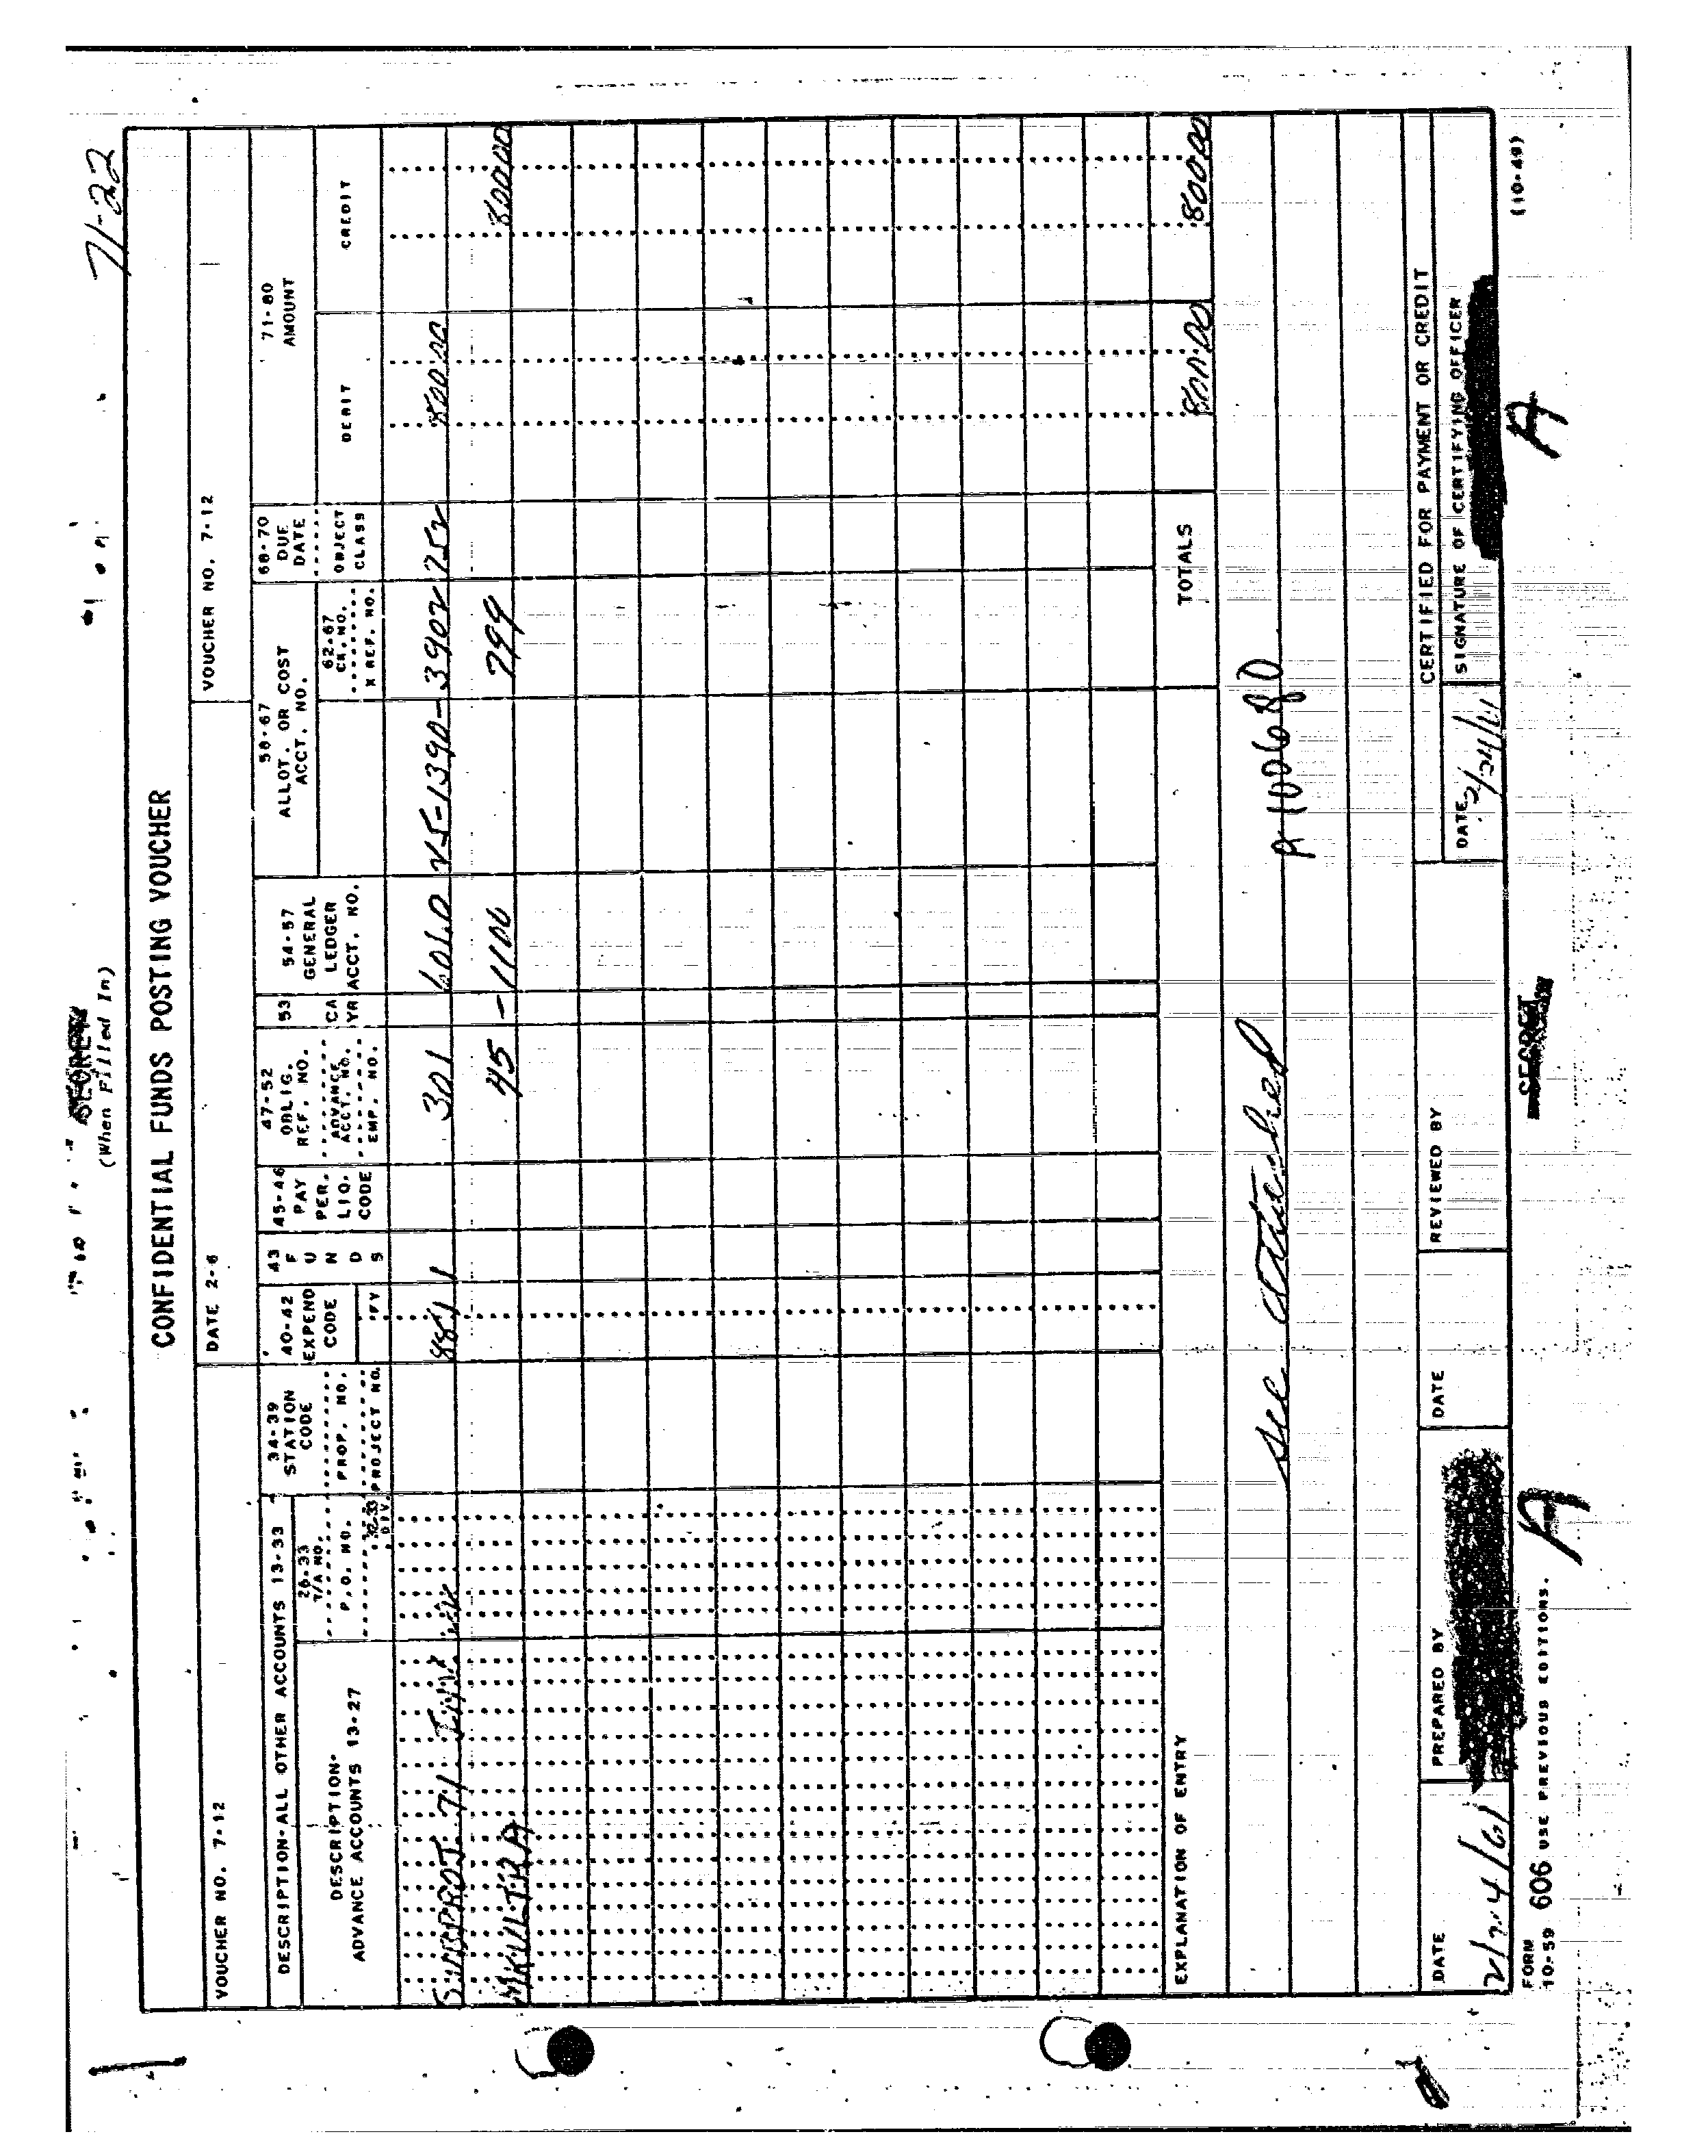 71-22
SECRET
(When Filled In)
CONFIDENTIAL FUNDS POSTING VOUCHER
VOUCHER NO. 7-12 DATE 2-6 VOUCHER NO. 7-12
DESCRIPTION-ALL OTHER ACCOUNTS 13-33
DESCRIPTION- ADVANCE ACCOUNTS 13-27
28-33 T/A NO. P.O. NO. 32-33 DIV.
34-39 STATION CODE PROP. NO. PROJECT NO.
40-42 EXPEND CODE FY
43 FUNDS
45-46 PAY PER. LIQ. CODE
47-52 OBLIG. REF. NO. ADVANCE ACCT. NO. EMP. NO.
53 CA YR
54-57 GENERAL LEDGER ACCT. NO.
58-67 ALLOT. OR COST ACCT. NO.
62-67 CK. NO. X REF. NO.
68-70 DUE DATE OBJECT CLASS
71-80 AMOUNT
DEBIT CREDIT
SUBPROJ 71 301 601.0 1390-3902 252 800.00
MKULTRA 45 -1100 799 800.00
TOTALS 800.00 800.00
EXPLANATION OF ENTRY
see attached
CERTIFIED FOR PAYMENT OR CREDIT
DATE PREPARED BY DATE REVIEWED BY DATE SIGNATURE OF CERTIFYING OFFICER
2/24/61 2/24/61
FORM 10-59 606 USE PREVIOUS EDITIONS. SECRET (10-49)
A A